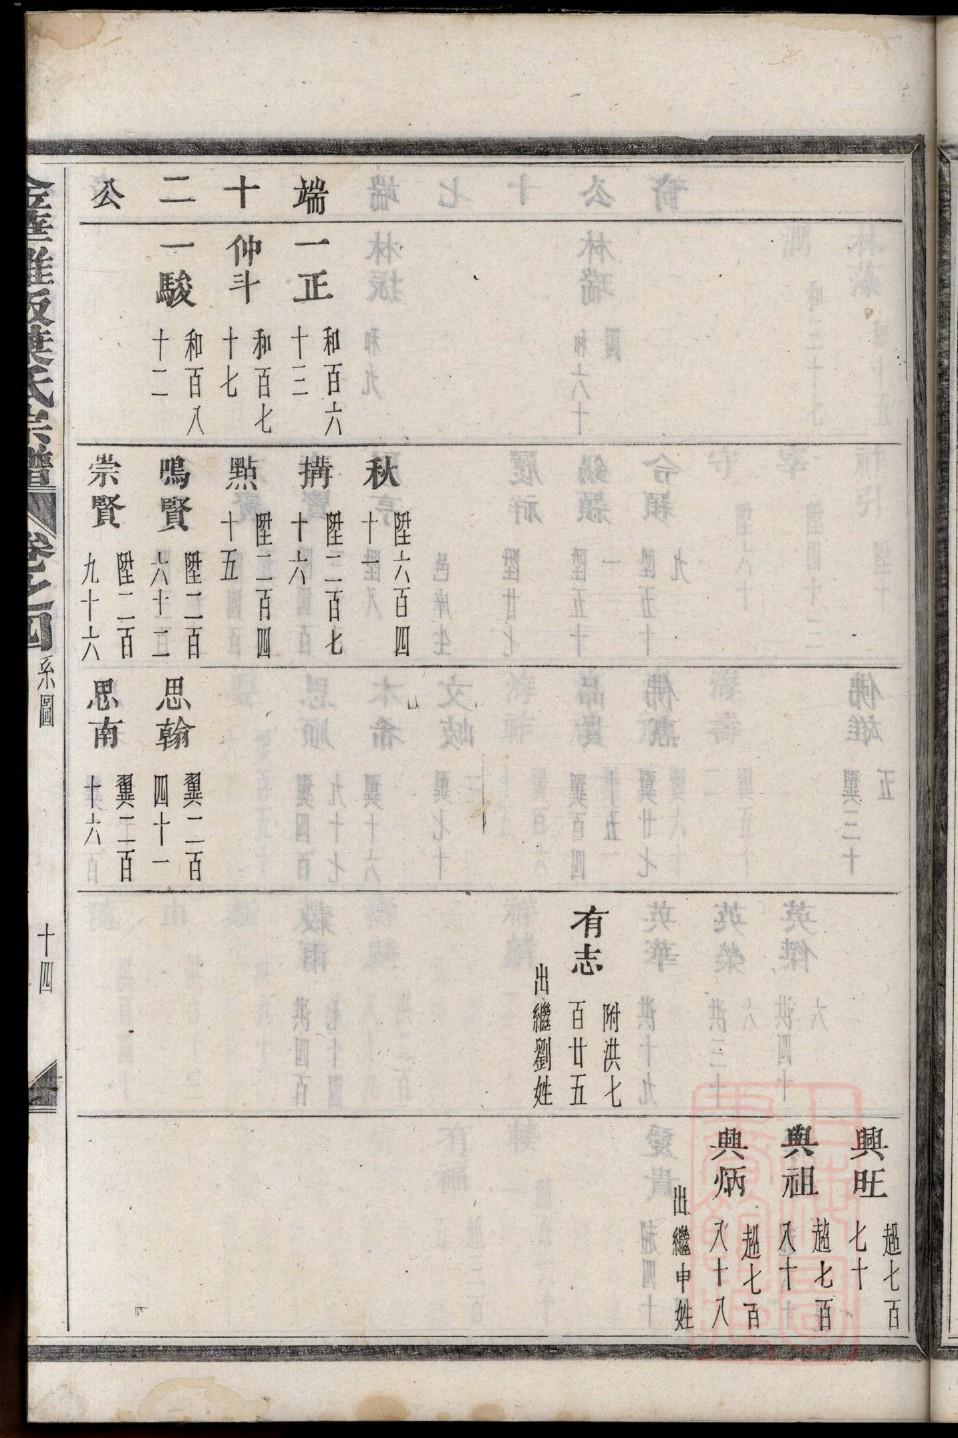 端十二公
一正 和百六十三
仲斗 和百七十七
一駿 和百八十二
秋 陞六百四十一
搆 陞二百七十六
點 陞二百四十五
鳴賢 陞二百六十二
崇賢 陞二百九十六
思翰 翼二百四十一
思南 翼二百十六
有志 附洪七百廿五
出繼劉姓
興旺 趙七百七十
與祖 趙七百八十
興炳 趙七百八十八
出繼申姓
葉氏宗譜 卷之四 系圖 十四